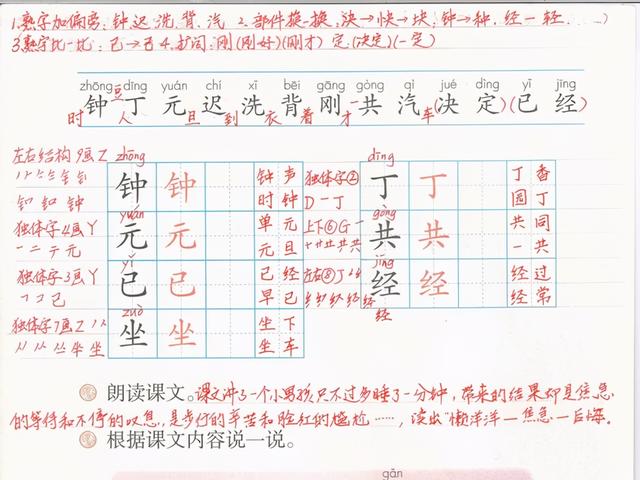 1.熟字加偏旁:钟 迟 洗 背 汽 2.部件换一换,决→快→块;钟→种,经→轻……)
3熟字比一比:已→己 4.扩词:刚(刚好)(刚才) 定(决定)(一定)
zhōng dīng yuán chí xǐ bēi gāng gòng qì jué dìng yǐ jīng
时钟 豆丁人 元旦 迟到 洗衣 背着 刚才 一共 汽车(决 定)(已 经)
左右结构 9画 Z zhōng dīng
钟 钟 钟声 时钟 独体字② D 一丁 丁 丁 丁香 园丁
独体字4画 丫 yuán gòng
一 二 テ 元 元 元 单元 元旦 上下⑥ G 一 十 廾 共 共 共 共 共同 一共
独体字3画 丫 yǐ jīng
フ コ 已 已 已 已经 早已 左右⑧ J 经 经 经 经过 经常
独体字7画 Z zuò
坐 坐 坐 坐 坐下 坐车
朗读课文。课文讲了一个小男孩只不过多睡了一分钟,带来的结果却是焦急
的等待和不停的叹息,是步行的辛苦和脸红的尴尬……,读出"懒洋洋—焦急—后悔。
根据课文内容说一说。
gǎn